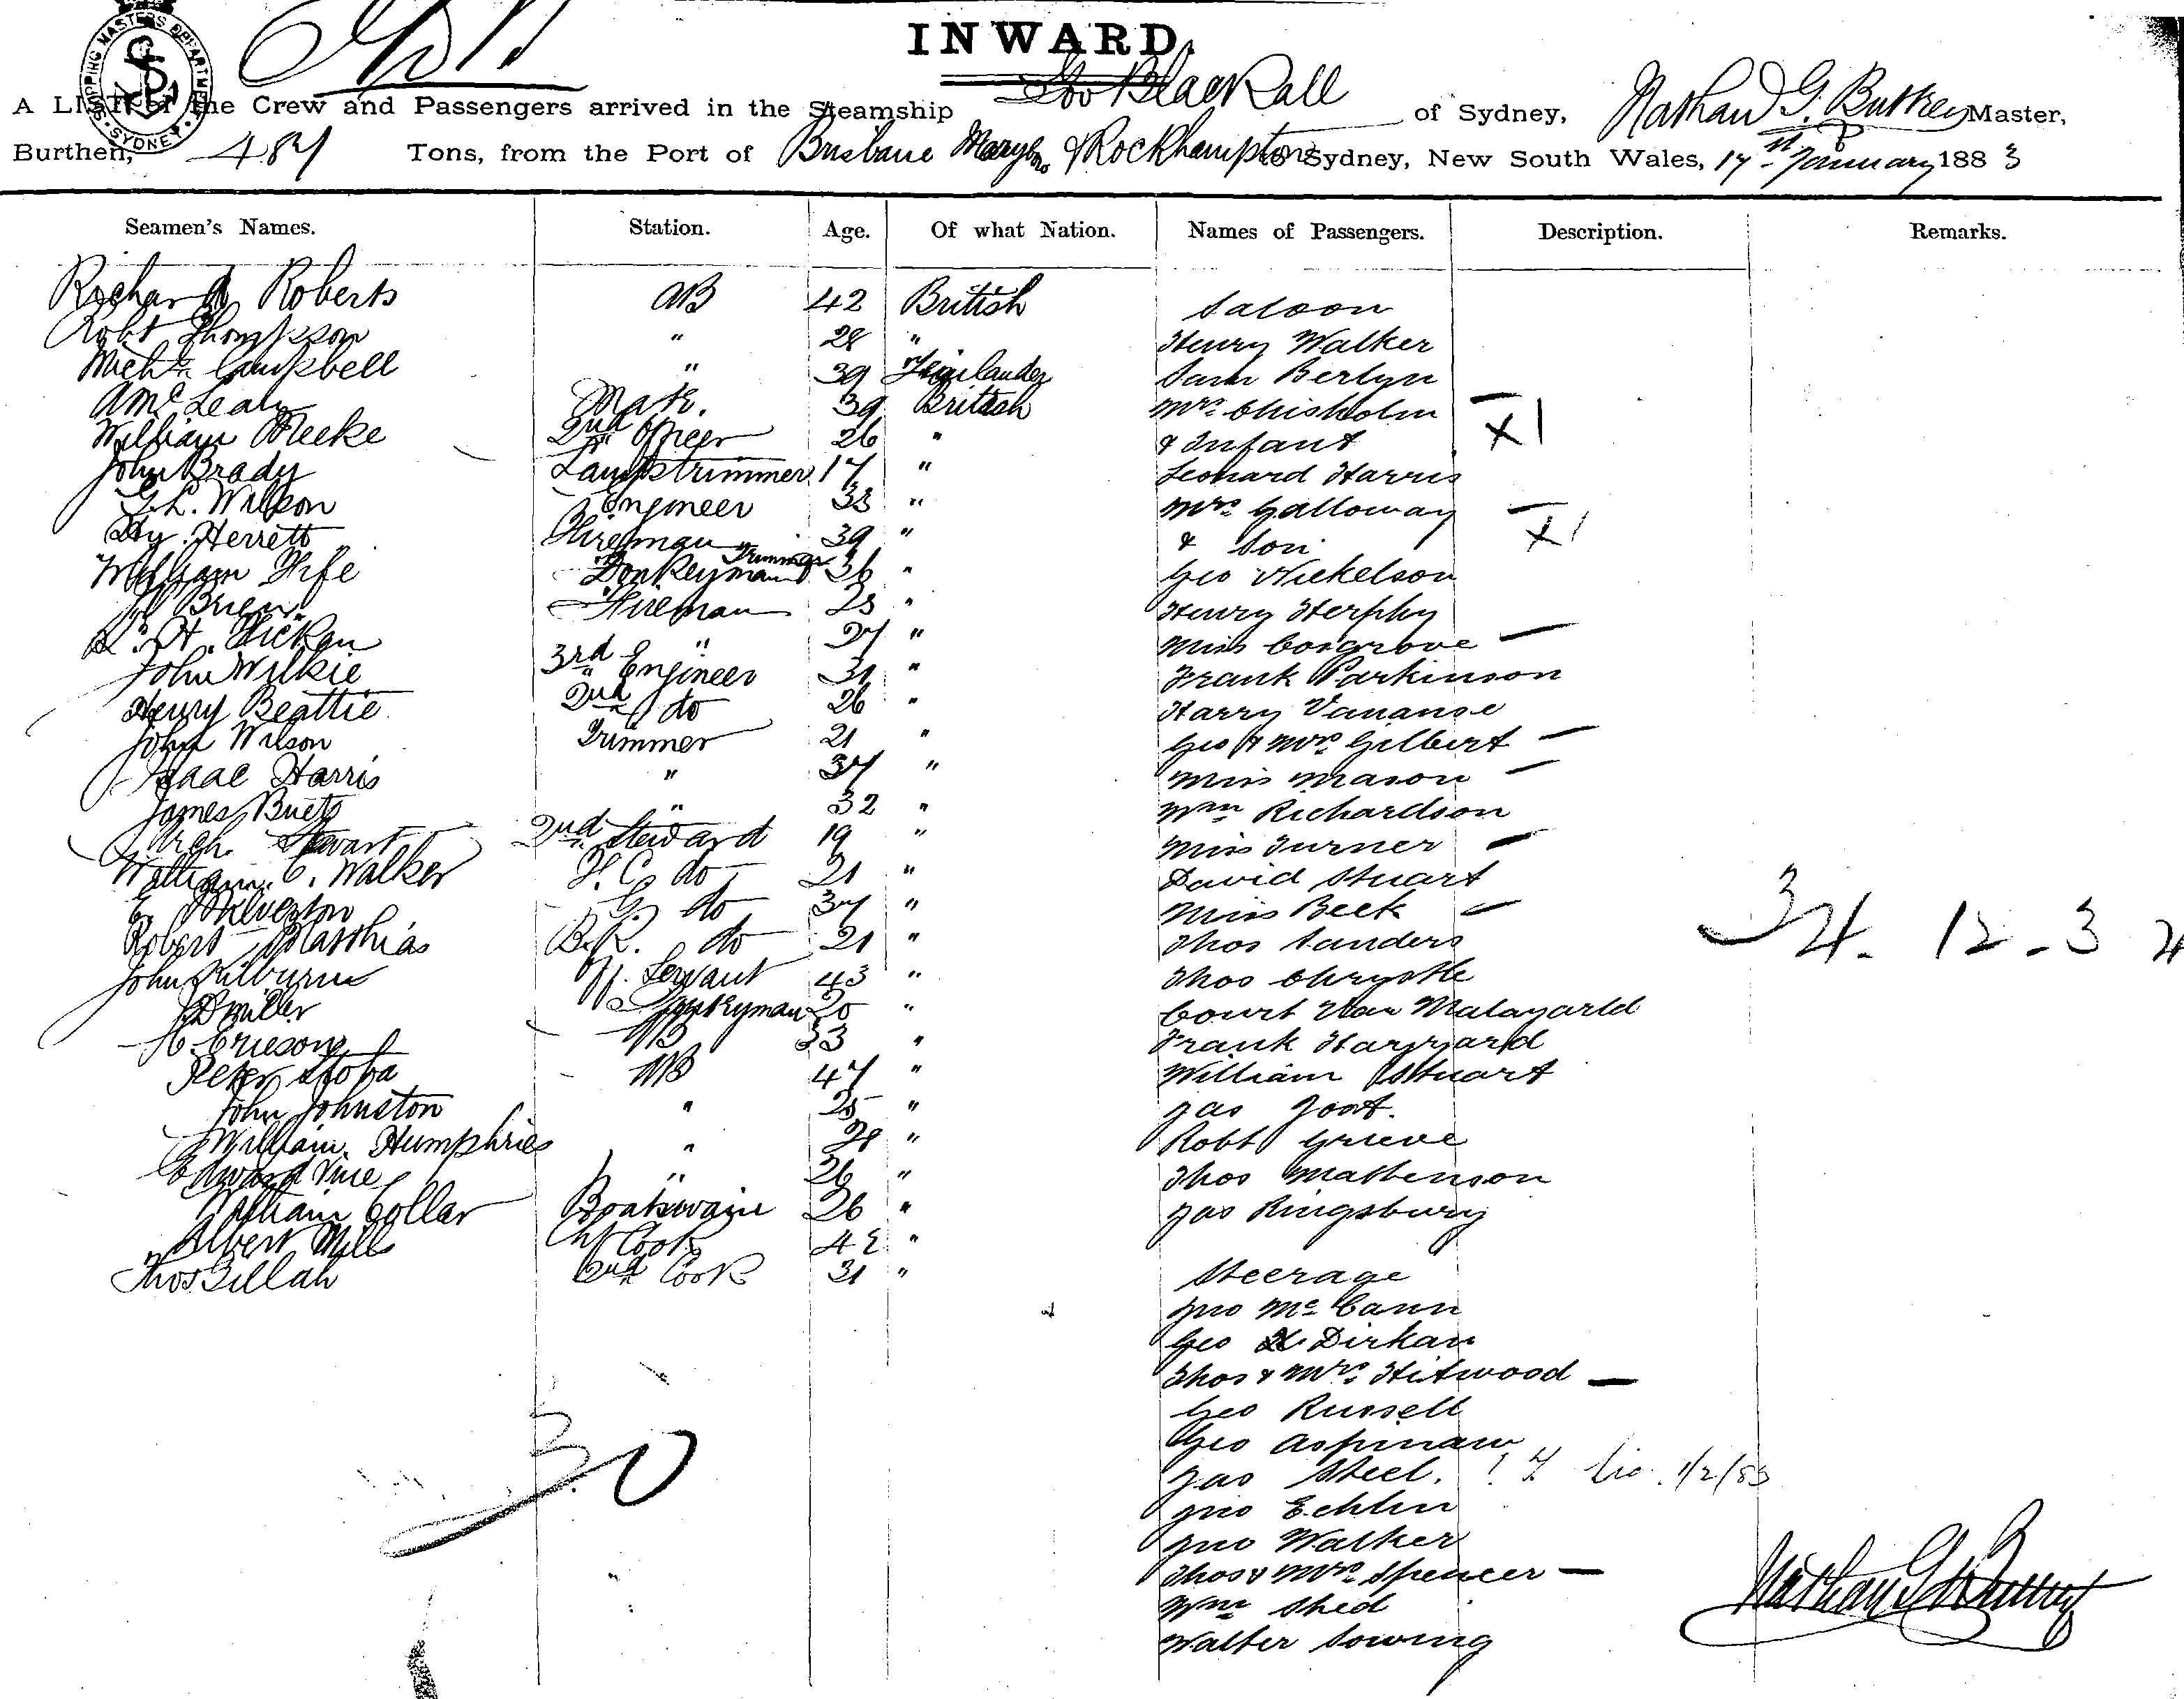 SHIPPING MASTERS DEPARTMENT SYDNEY
INWARD.
A LIST of the Crew and Passengers arrived in the Steamship Gov Blackall of Sydney, Nathan G. Master,
Burthen, 487 Tons, from the Port of Brisbane Maryboro & Rockhampton to Sydney, New South Wales, 17th January 1883
Seamen's Names. Station. Age. Of what Nation. Names of Passengers. Description. Remarks.
Richard Roberts AB 42 British Saloon
Robt Thompson " 28 " Henry Walker
Campbell " 39 Finlander Sam Berlyn
A Mc Lean Mate. 39 British Mrs Chisholm
William 2nd Officer 26 " & Infant X1
John Brady Lampstrimmer 17 " Leonard Harris
G.L. Wilson Engineer 33 " Mrs Galloway
Hy. Herrett Fireman 39 " & Son X1
William Fife Donkeyman Trimmer 36 " Geo Nickelson
Brien Fireman 23 " Henry Herphy
H. Hickan " 27 " Miss Cosgrove
John Wilkie 3rd Engineer 31 " Frank Parkinson
Henry Beattie 2nd do 26 " Harry Vananse
John Wilson Trimmer 21 " Geo & Mrs Gilbert
Isaac Harris " 37 " Miss Mason
James " 32 " Wm Richardson
Arch. Stewart 2nd Steward 19 " Miss Turner
William C. Walker F.C. do 21 " David Stuart
E. Wilverton G. do 37 " Miss Beek
Robert Matthias B.R. do 21 " Thos Sanders 34. 12. 3
John Kilburn Servant 43 " Thos Chrystle
D Miller Pantryman 20 " Court Van Malagarld
H. Ericson AB 33 " Frank Hayyard
Peter Stoba AB 47 " William Stuart
John Johnston " 25 " Jas Joat.
William. Humphries " 28 " Robt Grieve
Edward Vine " 26 " Thos Mathenson
William Collar Boatswain 26 " Jas Kingsbury
Albert Mills Ch Cook 42 "
Thos Gillah 2nd Cook 31 " Steerage
Jno Mc Cann
Geo Dirkan
Thos & Mrs Hitwood
Geo Russell
Geo Aspinaw
Jas Steel. 1/2/83
Jno Echlin
Jno Walker
Thos & Mrs Spencer
Wm Shed
Walter Sowing
30